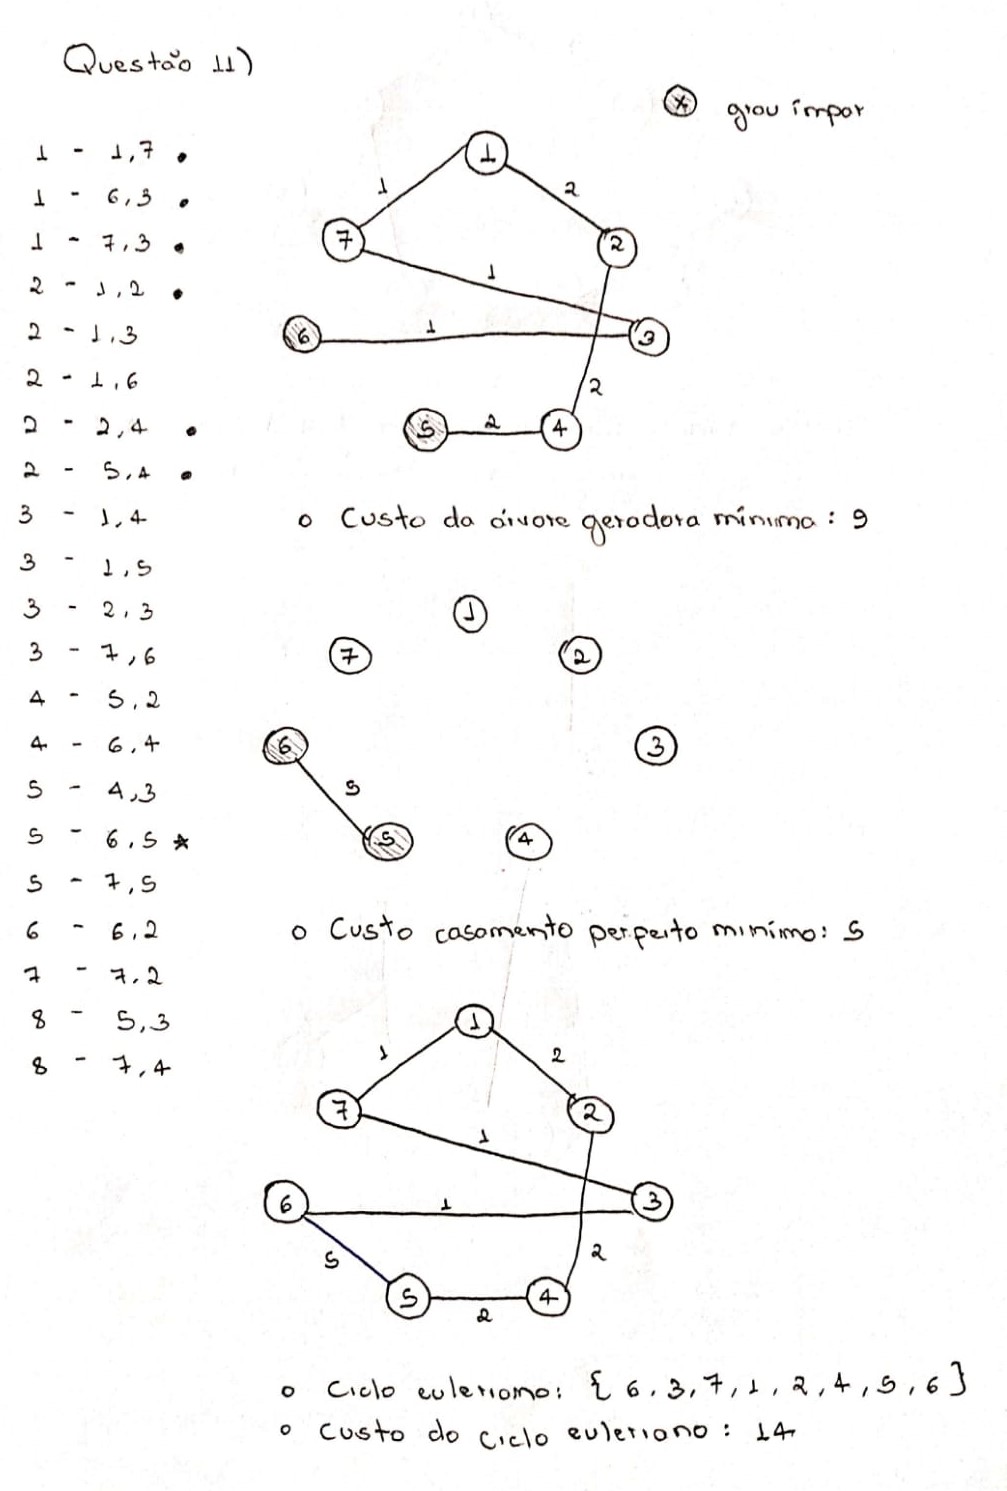 Questão 11)
* grau ímpar
1 - 1,7 •
1 - 6,3 •
1 - 7,3 •
2 - 1,2 •
2 - 1,3
2 - 1,6
2 - 2,4 •
2 - 5,4 •
3 - 1,4
3 - 1,5
3 - 2,3
3 - 7,6
4 - 5,2
4 - 6,4
5 - 4,3
5 - 6,5 *
5 - 7,5
6 - 6,2
7 - 7,2
8 - 5,3
8 - 7,4
1
1 2
7 2
1
6 1 3
2
5 2 4
o Custo da árvore geradora mínima: 9
1
7 2
6 3
5
5 4
o Custo casamento perfeito mínimo: 5
1
1 2
7 2
1
6 1 3
5 2
5 2 4
o Ciclo euleriano: { 6, 3, 7, 1, 2, 4, 5, 6 }
o Custo do ciclo euleriano: 14